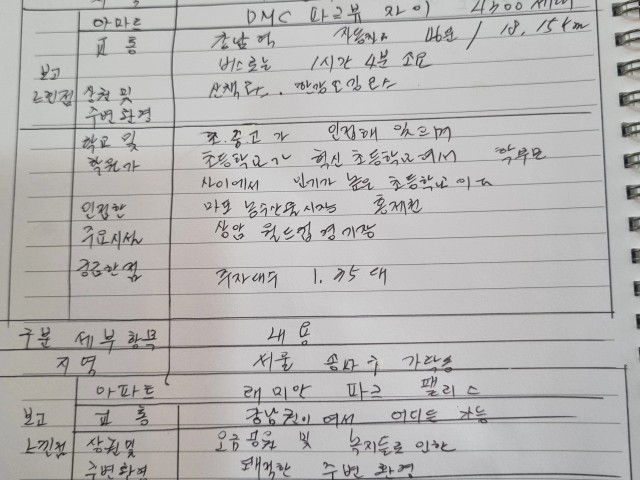 아파트 DMC 파크뷰 자이 4300세대
교통 강남역 자동차로 46분 / 18.15km
버스로는 1시간 4분 소요
보고 느낀점 상권 및 주변환경 산책로.
학교 및 학원가 초.중고가 인접해 있으며
초등학교가 혁신 초등학교여서 학부모
사이에서 인기가 높은 초등학교이다
인접한 주요시설 마포 농수산물시장 홍제천
상암 월드컵경기장
궁금한점 주차대수 1.35대
구분 세부항목 내용
지역 서울 송파구 가락동
아파트 래미안 파크 팰리스
보고 느낀점 교통 강남권이여서 어디든 가능
상권및 오금공원 및 녹지들로 인한
주변환경 쾌적한 주변 환경